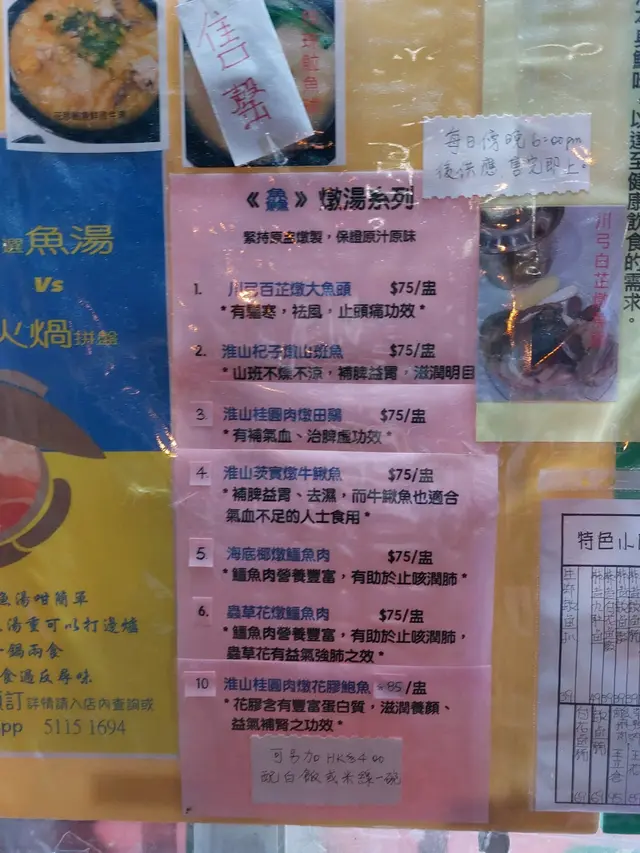 住口
每日傍晚 6:00pm
後供應 售完即止
《鱻》 燉湯系列
緊持原盅燉製，保證原汁原味
1. 川弓百芷燉大魚頭 $75/盅
*有驅寒，祛風，止頭痛功效*
2. 淮山杞子燉山班魚 $75/盅
*山班不燥不凉，補脾益胃，滋潤明目
3. 淮山桂圓肉燉田鷄 $75/盅
*有補氣血、治脾虛功效*
4. 淮山茨實燉牛鰍魚 $75/盅
*補脾益胃、去濕，而牛鰍魚也適合
氣血不足的人士食用*
5. 海底椰燉鱷魚肉 $75/盅
*鱷魚肉營養豐富，有助於止咳潤肺*
6. 蟲草花燉鱷魚肉 $75/盅
*鱷魚肉營養豐富，有助於止咳潤肺，
蟲草花有益氣強肺之效*
10 淮山桂圓肉燉花膠鮑魚 $85/盅
*花膠含有豐富蛋白質，滋潤養顏、
益氣補腎之功效*
可另加 HK$4.00
白飯或米線一碗
選魚湯
Vs
火鍋拼盤
魚湯咁簡單
湯重可以打邊爐
一鍋兩食
食過反尋味
訂詳情請入店內查詢或
pp 5115 1694
川弓白芷燉
以達至健康飲食的需求。
特色小